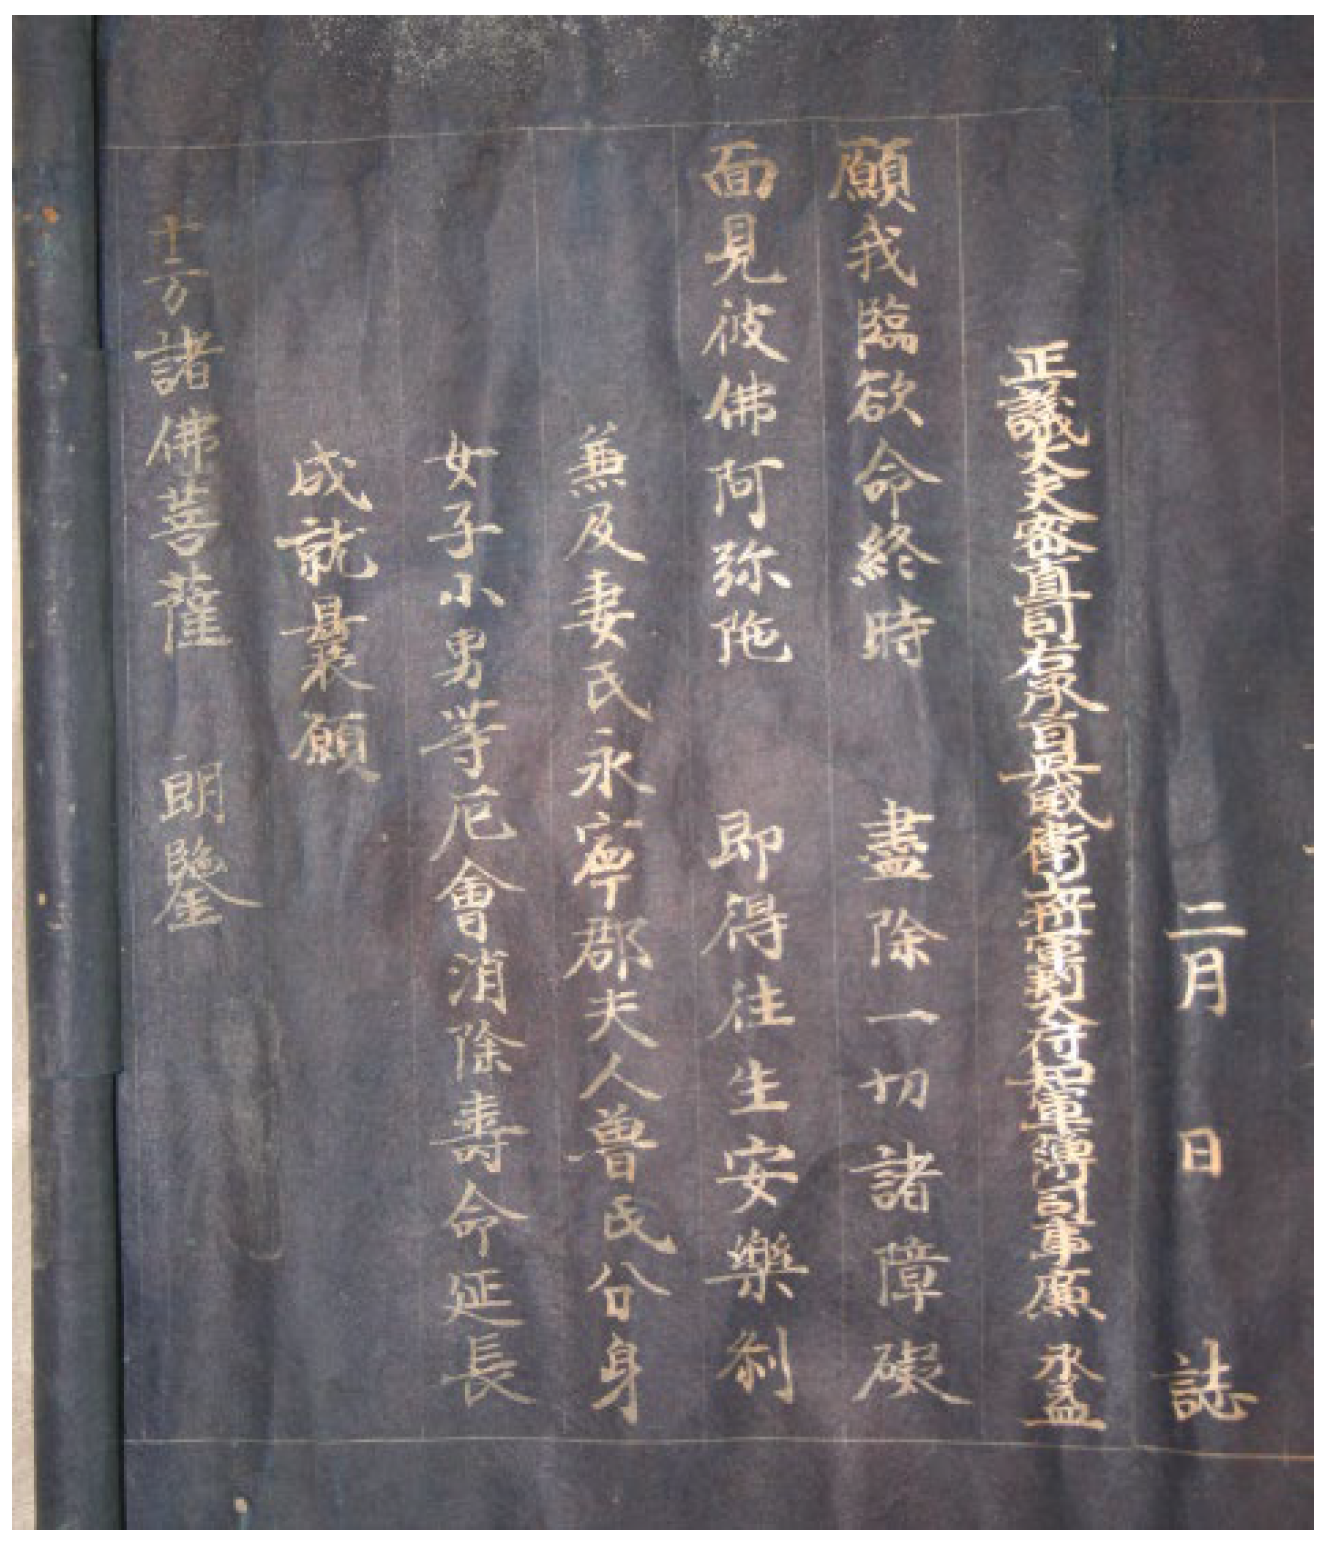 二月 日 誌
正議大夫密直司右承旨興威衛上將軍判大府知軍簿司事廉 承益
願我臨欲命終時 盡除一切諸障礙
面見彼佛阿弥陁 即得往生安樂刹
兼及妻氏永寧郡夫人曽氏分身
女子小男等厄會消除壽命延長
成就曩願
十方諸佛菩薩 朗鑒